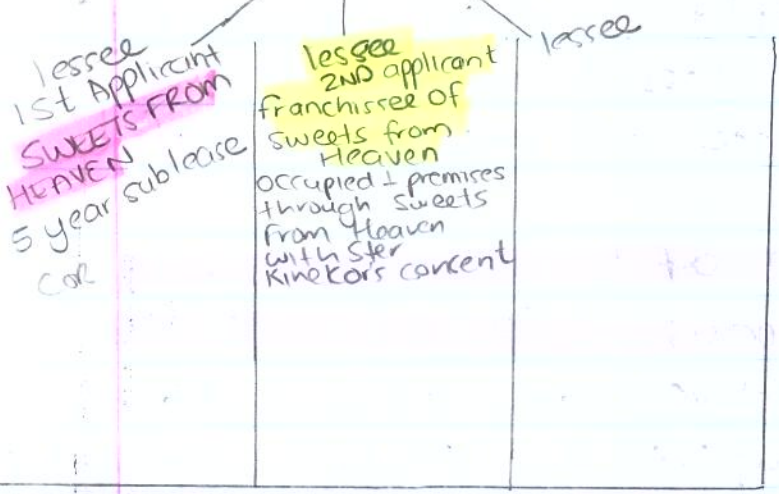 lessee
1st Applicant
SWEETS FROM
HEAVEN
5 year sublease
lessee
2ND applicant
franchissee of
sweets from
Heaven
occupied 1 premises
through sweets
from Heaven
with Ster
Kinekor's concent
lessee